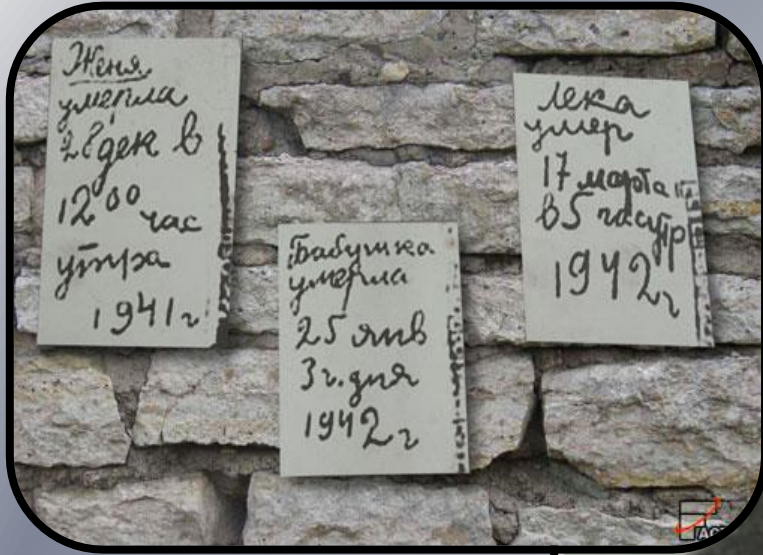 Женя
умерла
28 дек в
12 00 час
утра
1941 г
Бабушка
умерла
25 янв
3 ч. дня
1942 г
Лека
умер
17 марта
в 5 час утр
1942 г